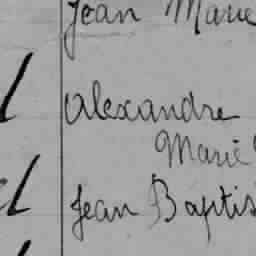 Jean Marie
Alexandre
Marie
Jean Baptis